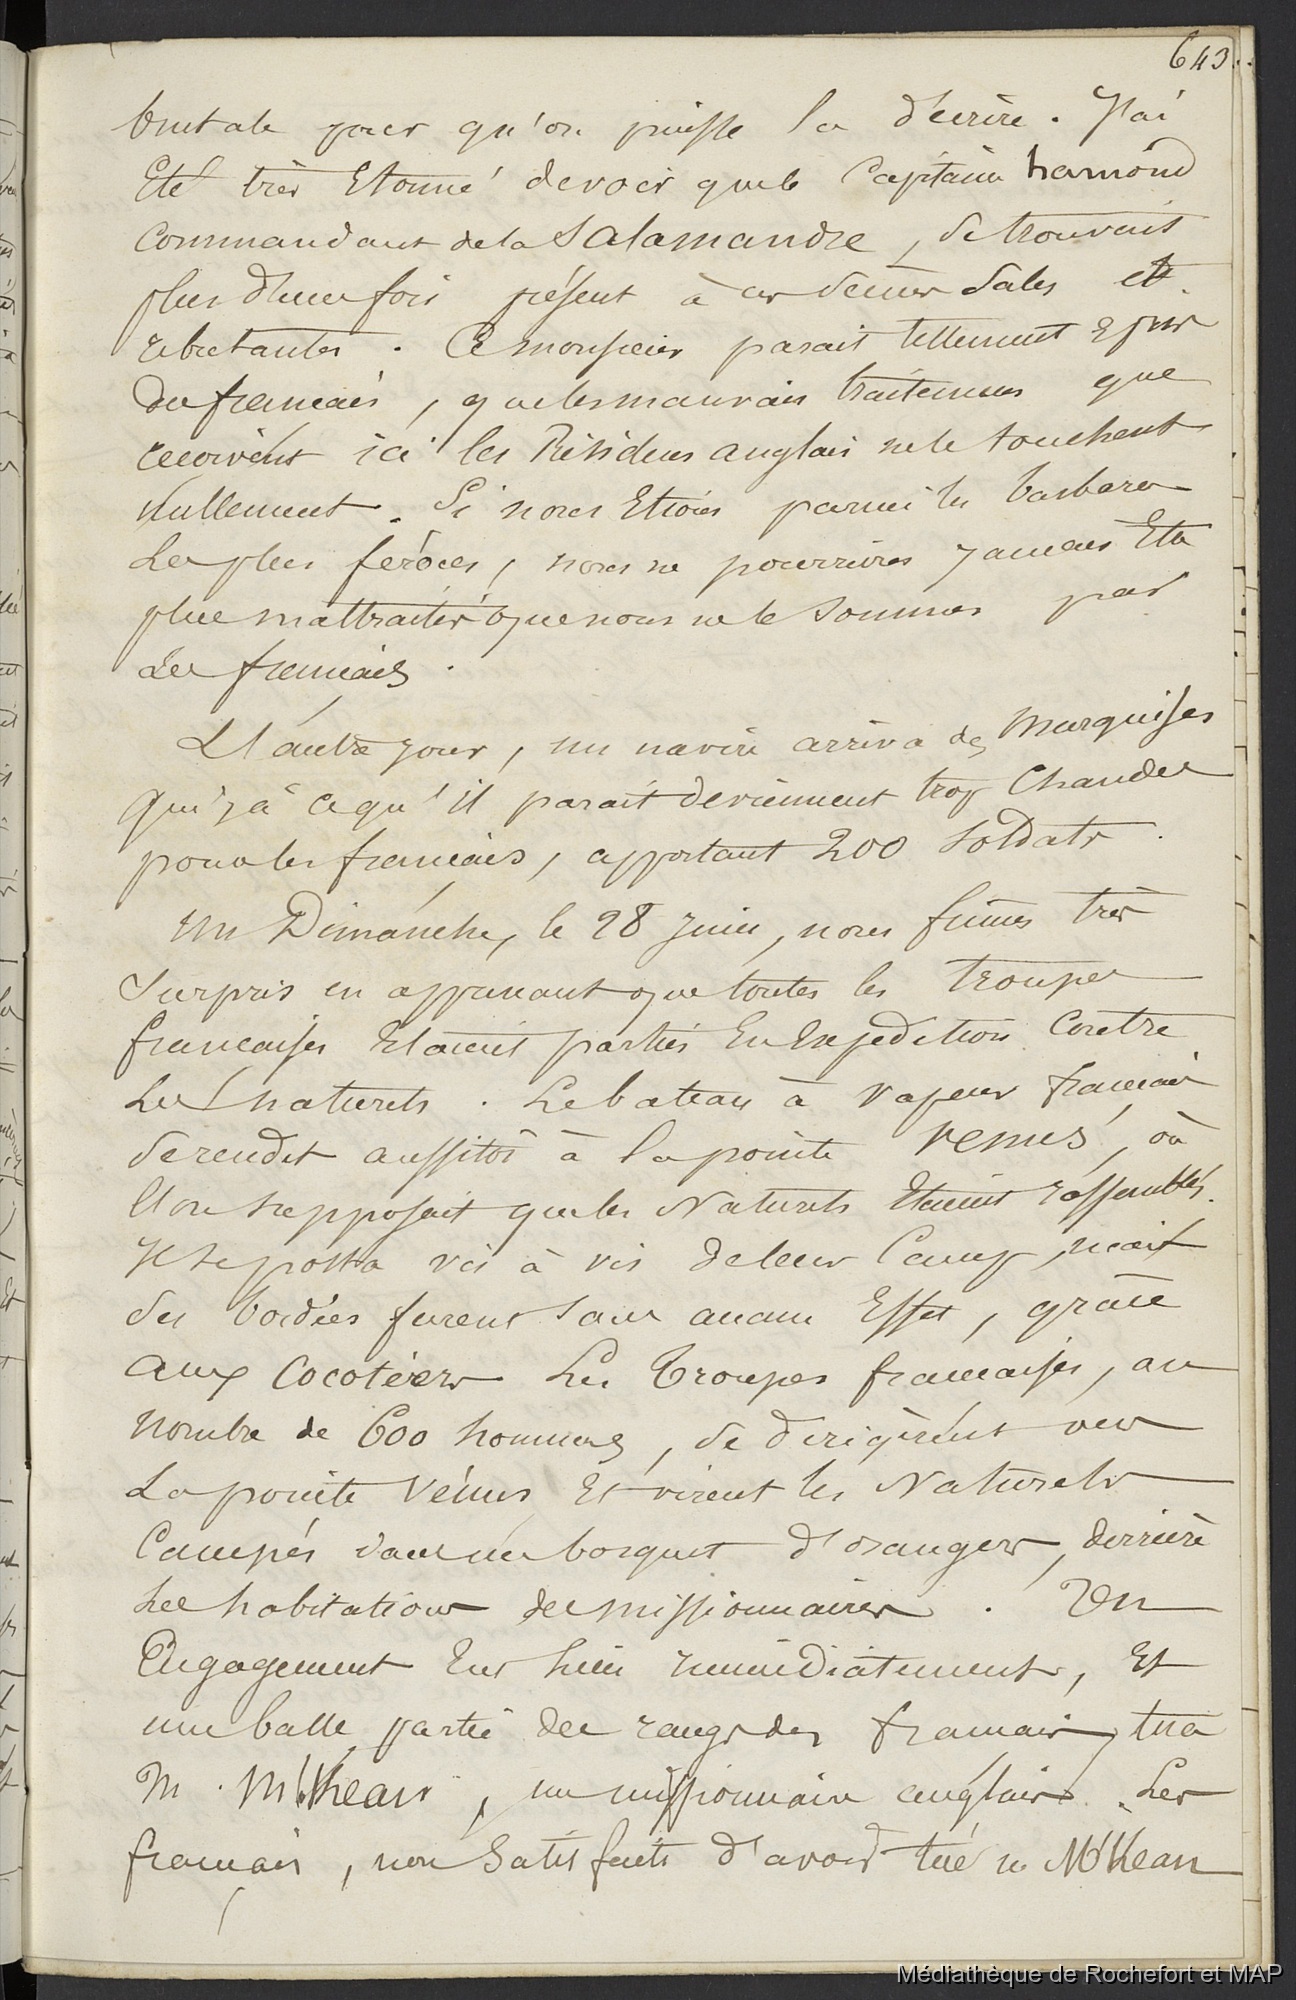 643.
brutale pour qu'on puisse la décrire. J'ai
Eté très Etonné de voir que le Capitaine hamond
Commandant de la Salamandre, se trouvait
plus d'une fois présent à ces scènes sales et
rebutantes. Ce monsieur parait tellement epris
des francais, que les mauvais traitemens que
recoivent ici les Résidens anglais ne le touchent
Nullement. Si nous Etions parmi les barbares
Les plus feroces, nous ne pourrions jamais Etre
plus maltraités que nous ne le sommes par
Les francais.
L'autre jour, un navire arriva des Marquises
qui, à ce qu'il parait deviennent trop Chaudes
pour les francais, apportant 200 soldats.
Un Dimanche, le 28 juin, nous fumes très
Surpris en apprenant que toutes les troupes
francaises Etaient parties En Expedition Contre
Les naturels. Le bateau à vapeur francais
se rendit aussitôt à la pointe venus, où
l'on supposait que les Naturels Etaient rassemblés.
Il se posta vis à vis de leur Camp, mais
ses bordées furent sans aucun Effet, grâce
aux Cocotiers Les Troupes francaises, au
Nombre de 600 hommes, se dirigèrent vers
La pointe Vénus Et virent les Naturels
Campés dans un bosquet d'orangers, derrière
Les habitations des missionnaires. Un
Engagement Eut lieu immédiatement, Et
une balle partie des rangs des francais, tua
M. M'Kean, un missionnaire anglais. Les
francais, non Satisfaits d'avoir tué M'Kean
Médiathèque de Rochefort et MAP